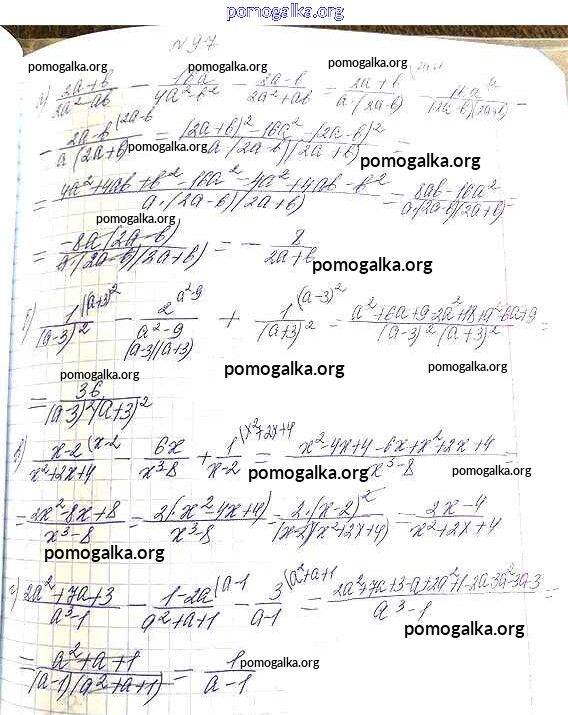 pomogalka.org
№97
pomogalka.org pomogalka.org pomogalka.org
а) (2a+b)/(2a²-ab) - 16a/(4a²-b²) - (2a-b)/(2a²+ab) = (2a+b)/(a·(2a-b)) - 16a/((2a-b)(2a+b)) -
- (2a-b)/(a(2a+b)) = ((2a+b)²-16a²-(2a-b)²)/(a(2a-b)(2a+b)) =
pomogalka.org pomogalka.org pomogalka.org
= (4a²+4ab+b²-16a²-4a²+4ab-b²)/(a·(2a-b)(2a+b)) = (8ab-16a²)/(a·(2a-b)(2a+b)) =
pomogalka.org pomogalka.org
= (-8a(2a-b))/(a·(2a-b)(2a+b)) = - 8/(2a+b)
pomogalka.org
б) 1/(a-3)² - 2/(a²-9) + 1/(a+3)² = (a²+6a+9-2a²+18+a²-6a+9)/((a-3)²(a+3)²) =
(a-3)(a+3)
pomogalka.org pomogalka.org pomogalka.org
= 36/((a-3)²(a+3)²)
pomogalka.org
в) (x-2)/(x²+2x+4) - 6x/(x³-8) + 1/(x-2) = (x²-4x+4-6x+x²+2x+4)/(x³-8) =
pomogalka.org pomogalka.org pomogalka.org
= (2x²-8x+8)/(x³-8) = 2(x²-4x+4)/(x³-8) = 2·(x-2)²/((x-2)(x²+2x+4)) = (2x-4)/(x²+2x+4)
pomogalka.org
г) (2a²+7a+3)/(a³-1) - (1-2a)/(a²+a+1) - 3/(a-1) = (2a²+7a+3-a+2a²+1-2a-3a²-3a-3)/(a³-1) =
pomogalka.org
= (a²+a+1)/((a-1)(a²+a+1)) = 1/(a-1)
pomogalka.org